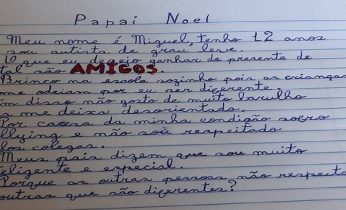 Papai Noel
Meu nome é Miguel, tenho 12 anos
sou autista de grau leve.
O que eu desejo ganhar de presente de
tal são AMIGOS.
Brinco na escola sozinho pois as crianças
me odeiam por eu ser diferente.
m disso não gosto de muito barulho
me deixa desorientado.
Por causa da minha condição sofro
llying e não sou respeitado
los colegas.
Meus pais dizem que sou muito
teligente e especial.
Porque as outras pessoas não respeita
outras que são diferentes?